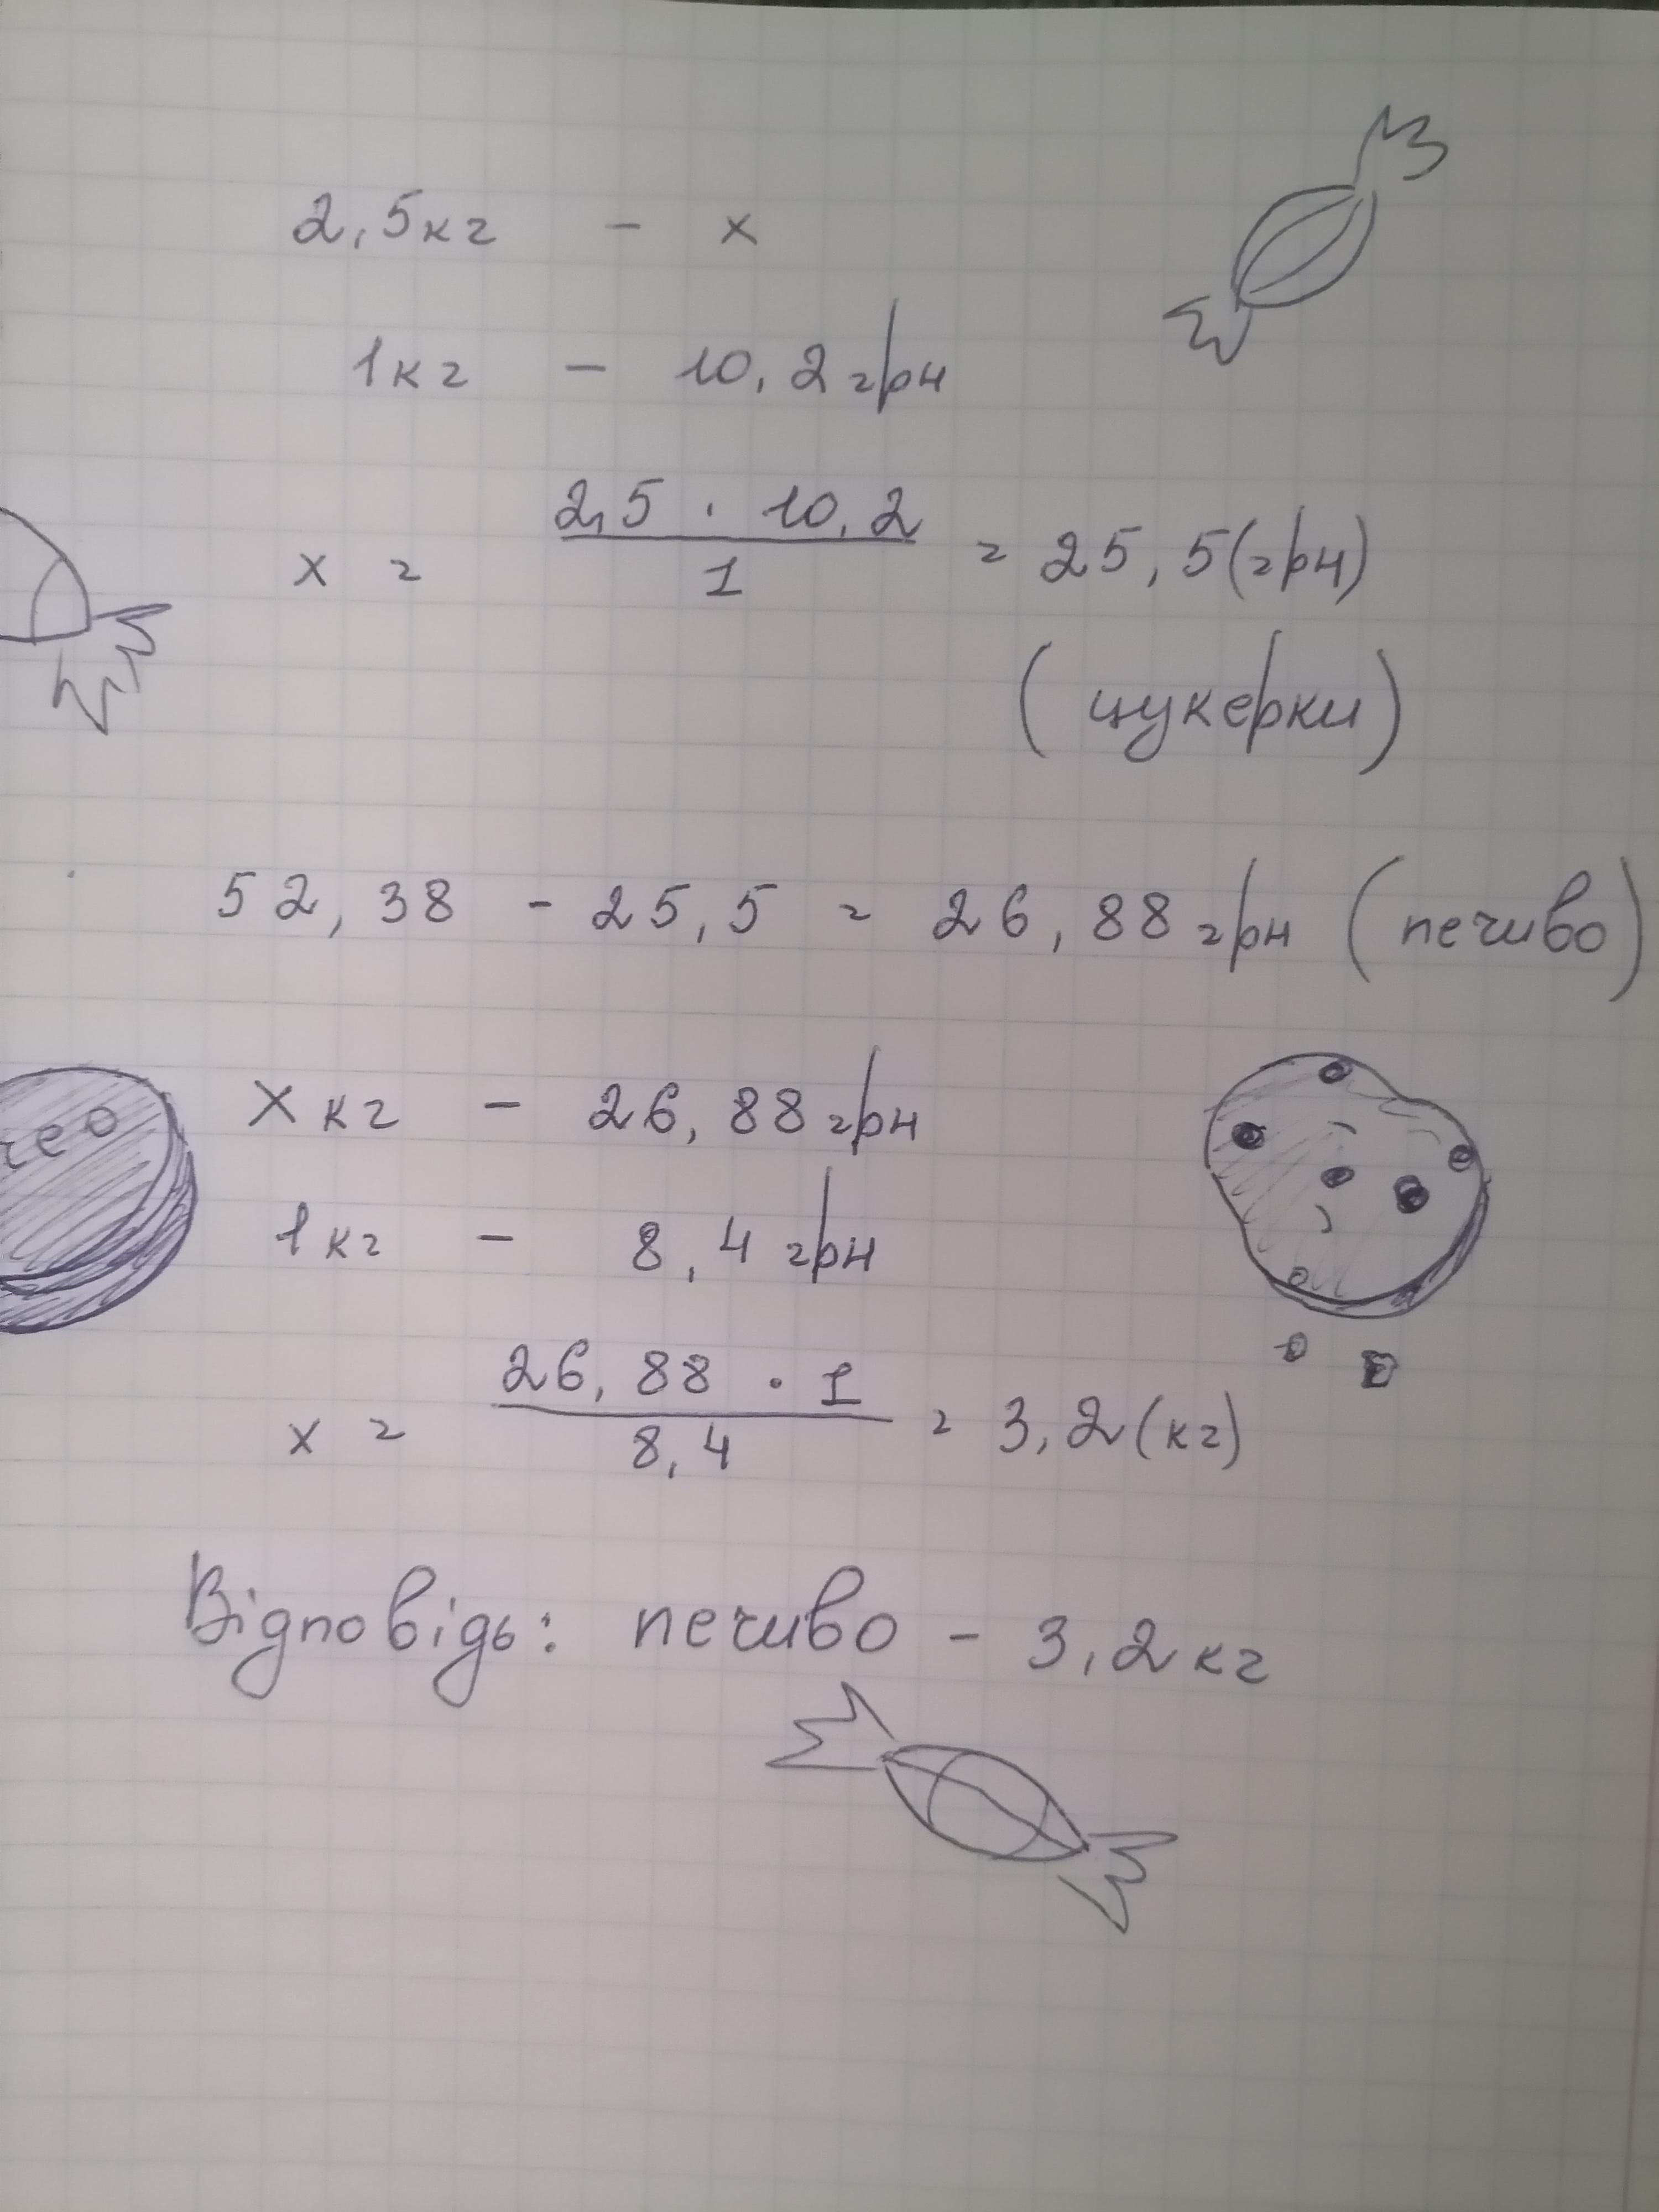 2,5кг - x
1кг - 10,2грн
x = 2,5 · 10,2 / 1 = 25,5(грн)
(цукерки)
52,38 - 25,5 = 26,88грн (печиво)
Xкг - 26,88грн
1кг - 8,4грн
x = 26,88 · 1 / 8,4 = 3,2(кг)
Відповідь: печиво - 3,2кг